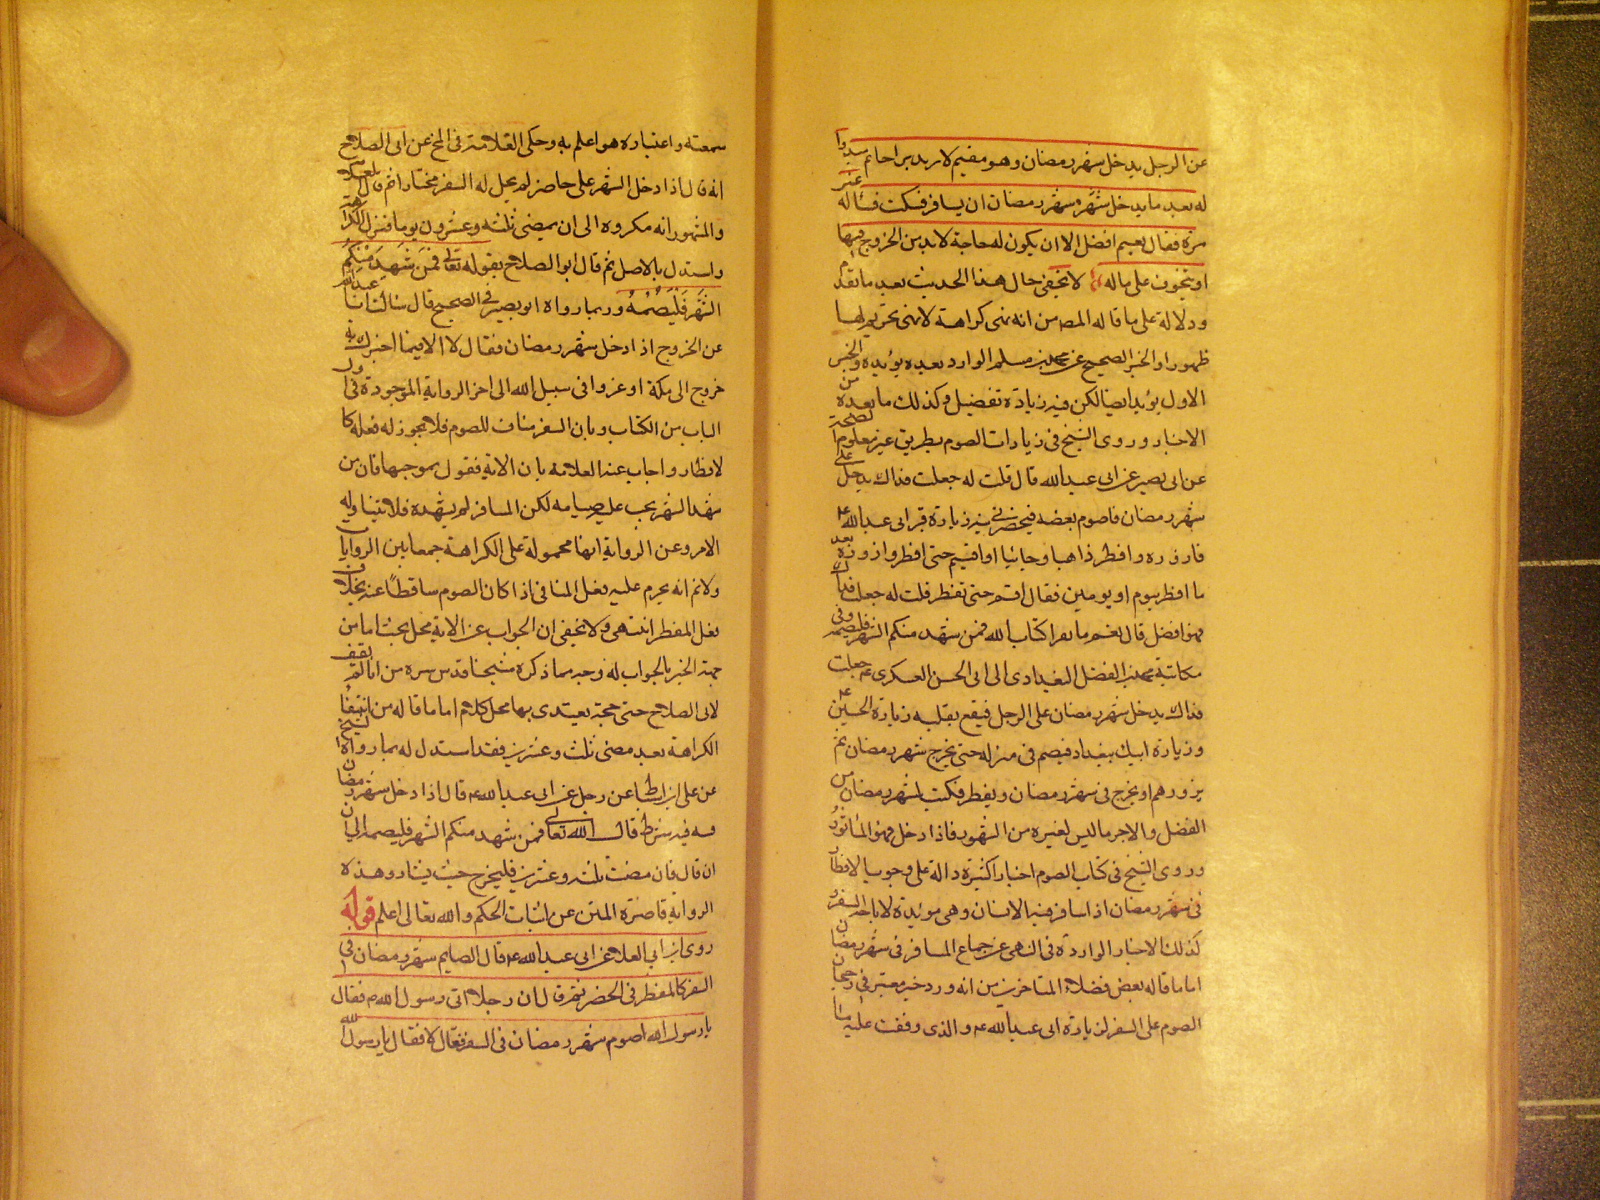 عن الرجل يدخل شهر رمضان وهو مقيم لا يريد براحا ثم يبدوا
له بعد ما يدخل شهر رمضان ان يسافر فسكت فسألته غير
مرة فقال يقيم افضل الا ان يكون له حاجة لا بد من الخروج فيها
او يتخوف على ماله لا يخفى حال هذا الحديث بعد ما تقدم
ودلالة على ما قاله المص من انه نهى كراهة لا نهى تحريم لها
ظهور او الخبر الصحيح عن محمد بن مسلم الوارد بعده يؤيده والخبر
الاول يؤيد ايضا لكن فيه زيادة تفضيل وكذلك ما بعده من
الاخبار وروى الشيخ في زيادات الصوم بطريق غير معلوم الصحة
عن ابي بصير عن ابي عبد الله قال قلت له جعلت فداك يدخل على
شهر رمضان فاصوم بعضه فيحضرني نية زيارة قبر ابي عبد الله ع
فازوره وافطر ذاهبا وجائيا او اقيم حتى افطر وازوره بعد
ما افطر بيوم او يومين فقال اقم حتى تفطر قلت له جعلت فداك
فهو افضل قال نعم ما تقرا كتاب الله فمن شهد منكم الشهر فليصمه وفي
مكاتبة محمد بن الفضل البغدادي الى ابي الحسن العسكري ع جعلت
فداك يدخل شهر رمضان على الرجل فيقع بقلبه زيارة الحسين ع
وزيارة ابيك ببغداد فيصم في منزله حتى يخرج شهر رمضان ثم
يزورهم او يخرج في شهر رمضان ويفطر فكتب لشهر رمضان من
الفضل والاجر ما ليس لغيره من الشهور فاذا دخل فهو الماثور
وروى الشيخ في كتاب الصوم اخبارا كثيرة دالة على وجوب الافطار
في شهر رمضان اذا سافر فيه الانسان وهي مؤيدة لاباحة السفر
كذلك الاخبار الواردة في النهي عن جماع المسافر في شهر رمضان
اما ما قاله بعض فضلاء المتاخرين من انه ورد خبر معتبر في رجحان
الصوم على السفر لزيارة ابي عبد الله ع والذي وقفت عليه ما
سمعته واعتباره هو اعلم به وحكى العلامة في المخ عن ابي الصلاح
انه قال اذا دخل الشهر على حاضر لم يحل له السفر مختارا ثم قال
والمشهور انه مكروه الى ان يمضي ثلثة وعشرون يوما فتزول الكراهة
واستدل بالاصل ثم قال ابو الصلاح بقوله تعالى فمن شهد منكم
الشهر فليصمه وربما رواه ابو بصير في الصحيح قال سالت ابا عبد الله
عن الخروج اذا دخل شهر رمضان فقال لا الا فيما اخبرك به
خروج الى مكة او غزوا في سبيل الله الى اخر الرواية الموجودة في اول
الباب من الكتاب وبان السفر مناف للصوم فلا يجوز له فعله كا
لافطار واجاب عنه العلامة بان الاية فنقول بموجبها فان من
شهد الشهر يجب عليه صيامه لكن المسافر لم يشهده فلا يتناوله
الامر وعن الرواية انها محمولة على الكراهة جمعا بين الروايات
ولانم انه يحرم عليه فعل المنافي اذا كان الصوم ساقطا عنه بخلاف
فعل المفطر انتهى ولا يخفى ان الجواب عن الاية محل بحث اما من
جهة الخبر بالجواب له وجه بما ذكره شيخنا قدس سره من انا لم نقف
لابي الصلاح حتى حجة يعتدى بها محل كلام اما ما قاله من انتفاء
الكراهة بعد مضي ثلث وعشرين فقد استدل له بما رواه الشيخ
عن علي بن اسباط عن رجل عن ابي عبد الله ع قال اذا دخل شهر رمضان
فلله فيه شرط قال الله تعالى فمن شهد منكم الشهر فليصمه الى
ان قال فان مضت ثلثة وعشرين فليخرج حيث يشاء وهذه
الرواية قاصرة المتن عن اثبات الحكم والله تعالى اعلم قوله
روى ابن ابي العلاء عن ابي عبد الله ع قال الصايم شهر رمضان في
السفر كالمفطر في الحضر ثم قال ان رجلا اتى رسول الله ص فقال
يا رسول الله اصوم شهر رمضان في السفر فقال لا فقال يا رسول الله